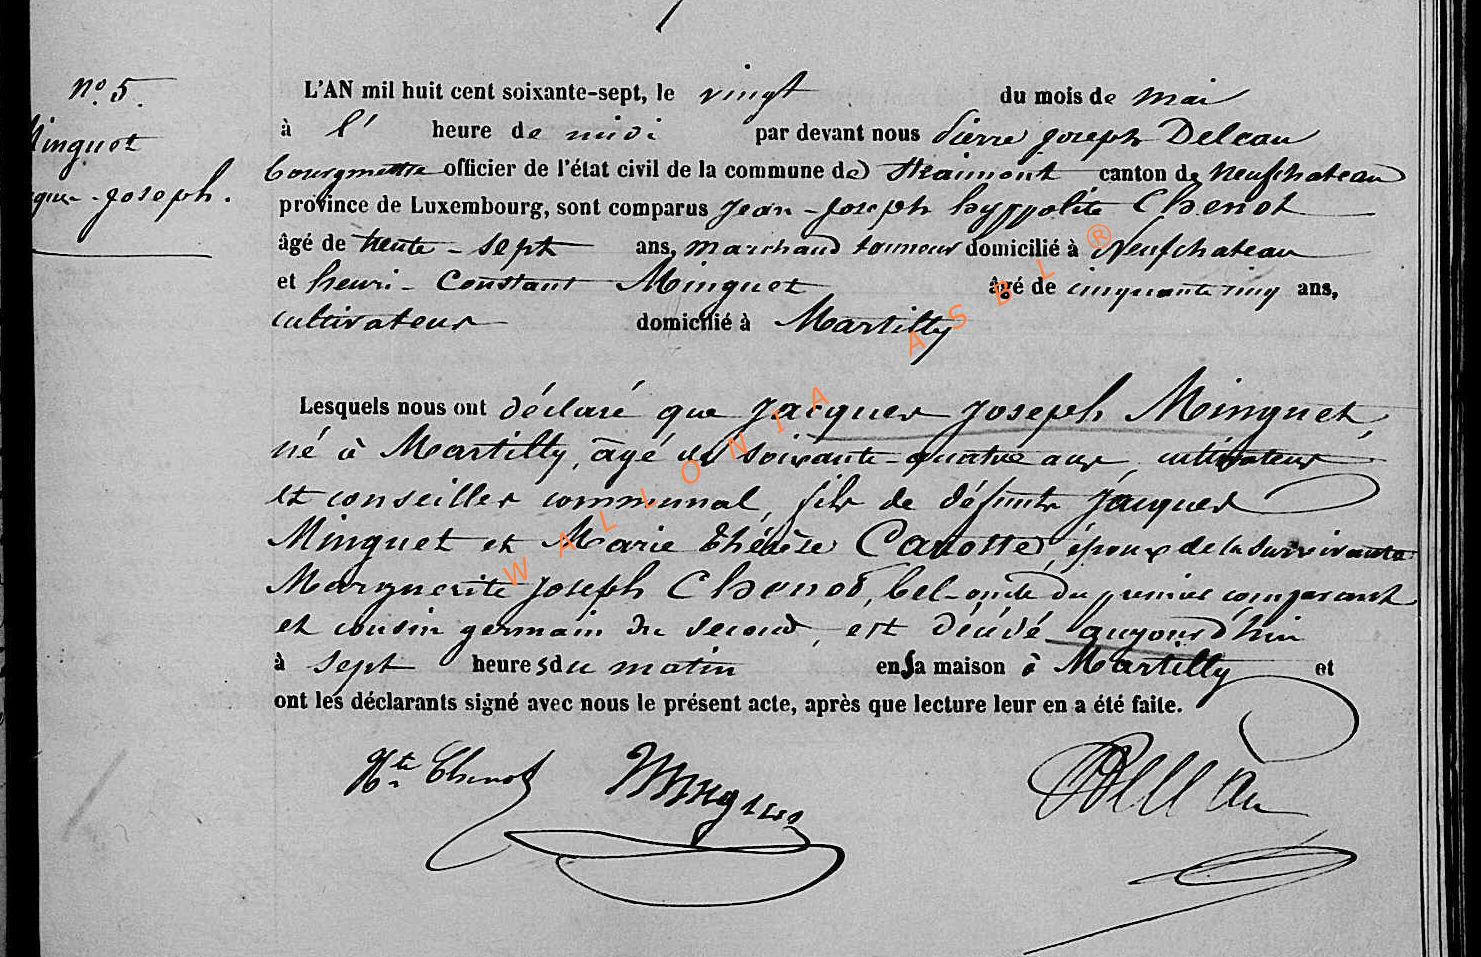 n° 5.
Minguet
Jacques-Joseph.
L'AN mil huit cent soixante-sept, le vingt du mois de mai
à l' heure de midi par devant nous Pierre Joseph Deleau
bourgmestre officier de l'état civil de la commune de Straimont canton de Neufchateau
province de Luxembourg, sont comparus Jean-Joseph hyppolite Chenot
âgé de trente-sept ans, marchand tanneur domicilié à Neufchateau
et henri-Constant Minguet âgé de cinquante cinq ans,
cultivateur domicilié à Martilly
Lesquels nous ont déclaré que Jacques Joseph Minguet,
né à Martilly, âgé de soixante-quatre ans, cultivateur
et conseiller communal, fils de défunts Jacques
Minguet et Marie thérèse Carotte, époux de la survivante
Marguerite Joseph Chenot, bel-oncle du premier comparant
et cousin germain du second, est décédé aujourd'hui
à sept heures du matin en sa maison à Martilly et
ont les déclarants signé avec nous le présent acte, après que lecture leur en a été faite.
Hte Chenot Minguet PJDeleau
WALLONIA ASBL ®